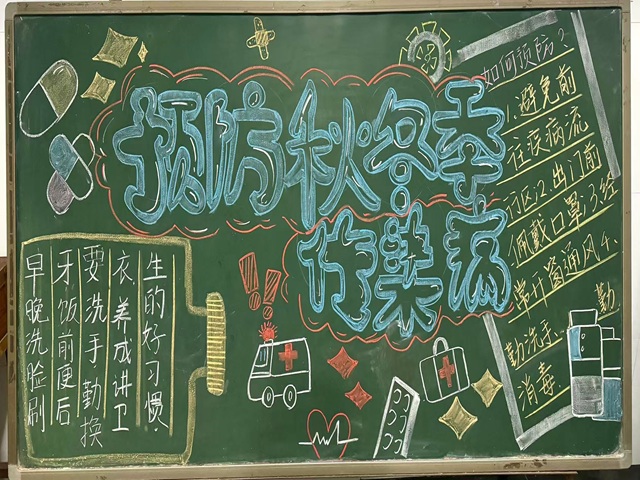 预防秋冬季
传染病
如何预防?
1.避免前
往疾病流
行区2.出门前
佩戴口罩3.经
常开窗通风4.
勤
勤洗手、
消毒.
早晚洗脸刷
牙饭前便后
要洗手勤换
衣养成讲卫
生的好习惯